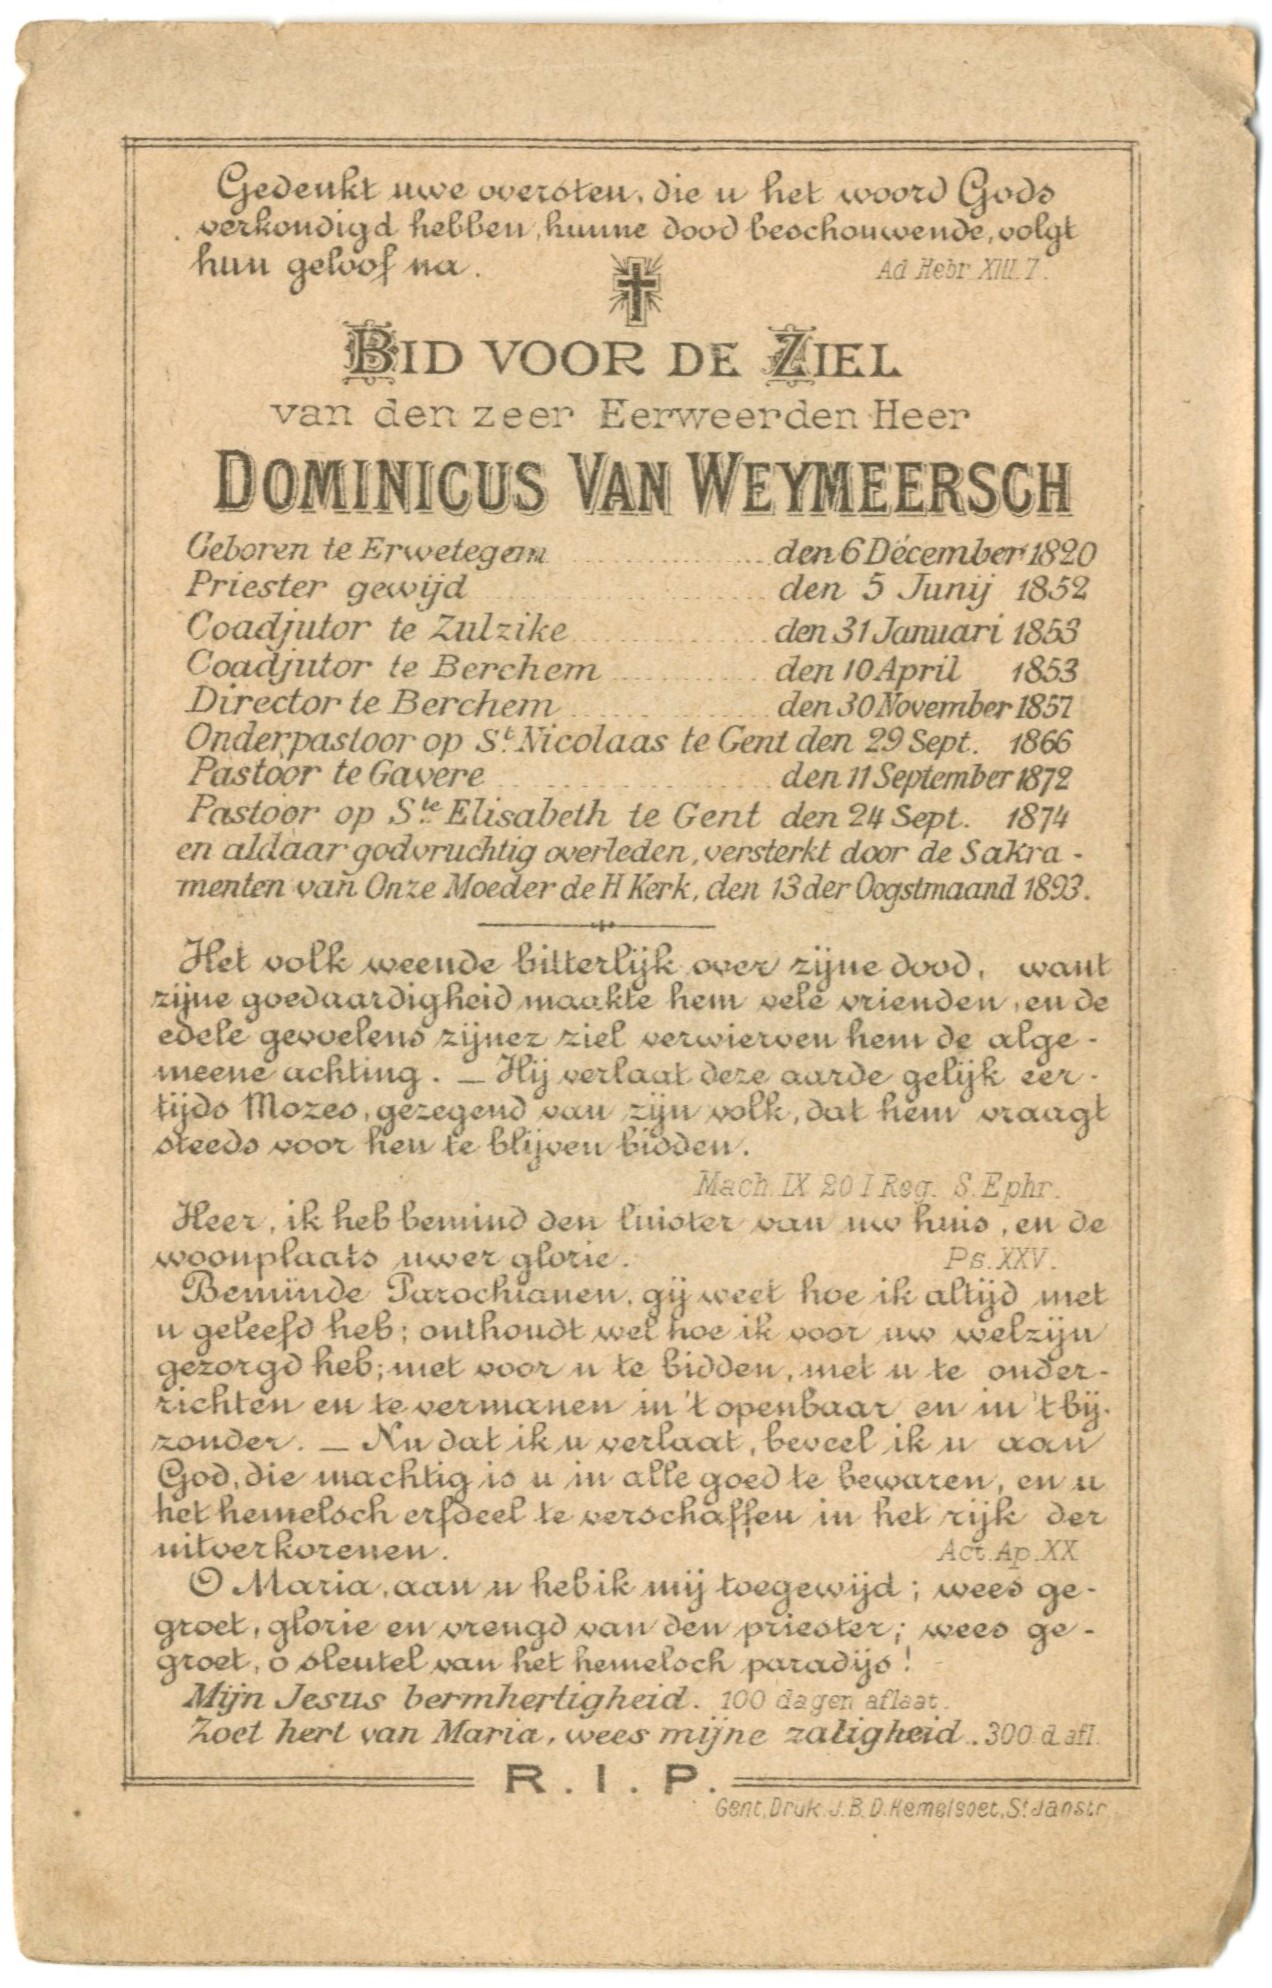 Gedenkt uwe oversten, die u het woord Gods
verkondigd hebben, hunne dood beschouwende, volgt
hun geloof na. Ad Hebr. XIII. 7.
BID VOOR DE ZIEL
van den zeer Eerweerden Heer
DOMINICUS VAN WEYMEERSCH
Geboren te Erwetegem den 6 Décember 1820
Priester gewijd den 5 Junij 1852
Coadjutor te Zulzike den 31 Januari 1853
Coadjutor te Berchem den 10 April 1853
Director te Berchem den 30 November 1857
Onderpastoor op St. Nicolaas te Gent den 29 Sept. 1866
Pastoor te Gavere den 11 September 1872
Pastoor op Ste Elisabeth te Gent den 24 Sept. 1874
en aldaar godvruchtig overleden, versterkt door de Sakra-
menten van Onze Moeder de H Kerk, den 13 der Oogstmaand 1893.
Het volk weende bitterlijk over zijne dood, want
zijne goedaardigheid maakte hem vele vrienden, en de
edele gevoelens zijner ziel verwierven hem de alge-
meene achting. — Hij verlaat deze aarde gelijk eer-
tijds Mozes, gezegend van zijn volk, dat hem vraagt
steeds voor hen te blijven bidden.
Mach. IX 20 I Reg. S. Ephr.
Heer, ik heb bemind den luister van uw huis, en de
woonplaats uwer glorie. Ps. XXV.
Beminde Parochianen, gij weet hoe ik altijd met
u geleefd heb; onthoudt wel hoe ik voor uw welzijn
gezorgd heb; met voor u te bidden, met u te onder-
richten en te vermanen in 't openbaar en in 't bij-
zonder. — Nu dat ik u verlaat, beveel ik u aan
God, die machtig is u in alle goed te bewaren, en u
het hemelsch erfdeel te verschaffen in het rijk der
uitverkorenen. Act. Ap. XX
O Maria, aan u heb ik mij toegewijd; wees ge-
groet, glorie en vreugd van den priester; wees ge-
groet, o sleutel van het hemelsch paradijs!
Mijn Jesus bermhertigheid. 100 dagen aflaat.
Zoet hert van Maria, wees mijne zaligheid. 300 d. afl.
R. I. P.
Gent, Druk. J. B. D. Hemelsoet, St Janstr.